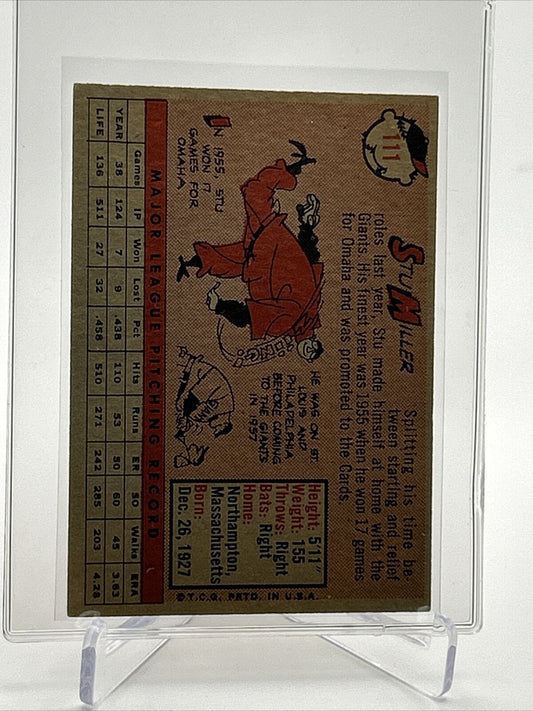 111
STU MILLER
Splitting his time be-
tween starting and relief
roles last year, Stu made himself at home with the
Giants. His finest year was 1955 when he won 17 games
for Omaha and was promoted to the Cards.
IN 1955, STU
WON 17
GAMES FOR
OMAHA
HE WAS ON ST.
LOUIS AND
PHILADELPHIA
BEFORE COMING
TO THE GIANTS
IN 1957
Height: 5'11"
Weight: 155
Throws: Right
Bats: Right
Home:
Northampton,
Massachusetts
Born:
Dec. 26, 1927
MAJOR LEAGUE PITCHING RECORD
Games IP Won Lost Pct Hits Runs ER SO Walks ERA
YEAR 38 124 7 9 .438 110 53 50 60 45 3.63
LIFE 136 511 27 32 .458 510 271 242 285 203 4.26
©T.C.G. PRTD. IN U.S.A.